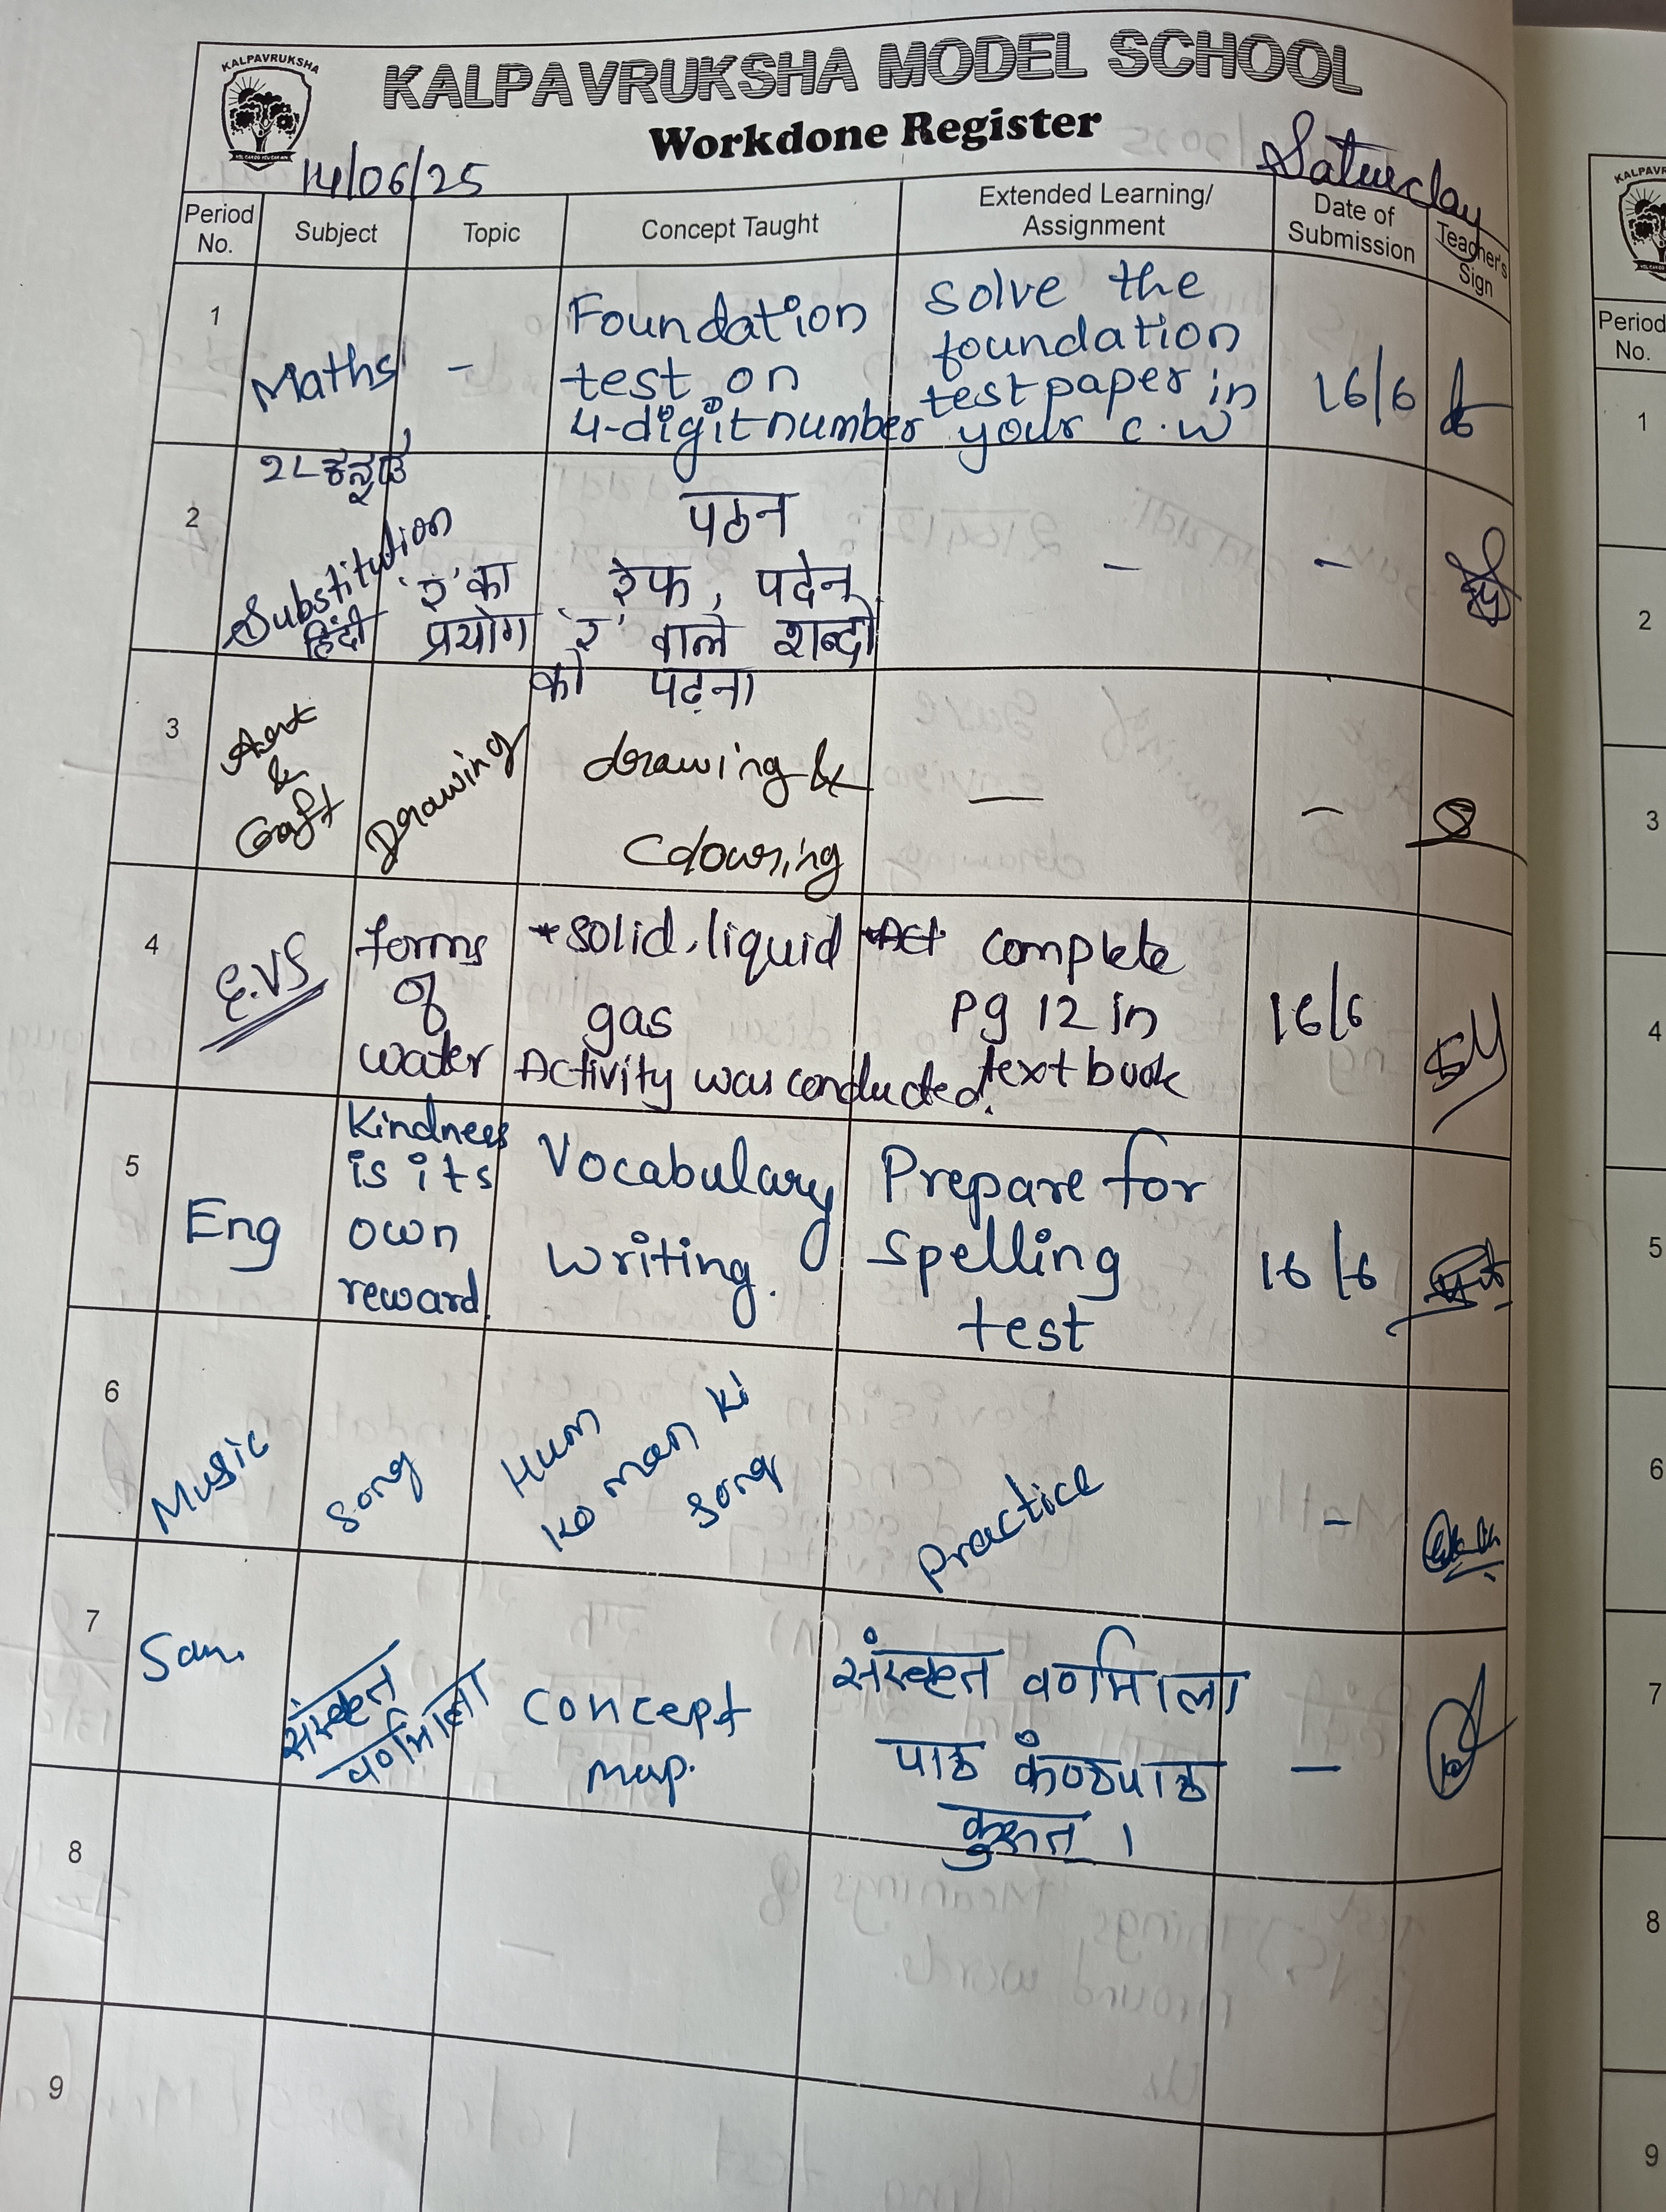 KALPAVRUKSHA
KALPAVRUKSHA MODEL SCHOOL
Workdone Register
14/06/25
Saturday
Period No.
Subject
Topic
Concept Taught
Extended Learning/ Assignment
Date of Submission
Teacher's Sign
1
Maths
-
Foundation
test on
4-digit number
solve the
foundation
test paper in
your c.w
16/6
2
2L ಕನ್ನಡ
Substitution
हिंदी
'र' का
प्रयोग
पठन
रेफ, पदेन
'र' वाले शब्दों
को पढ़ना
-
-
3
Art
&
Craft
Drawing
drawing &
Colouring
-
-
4
E.VS
forms
of
water
*solid, liquid
gas
Activity was conducted.
complete
Pg 12 in
text book
16/6
5
Eng
Kindness
is its
own
reward.
Vocabulary
writing.
Prepare for
spelling
test
16/6
6
Music
song
Hum
ko man ki
song
practice
-
7
San.
संस्कृत
वर्णमाला
Concept
map.
संस्कृत वर्णमाला
पाठ कंण्ठपाठ
कुरुत।
-
8
9
KALPAVR
Period
No.
1
2
3
4
5
6
7
8
9